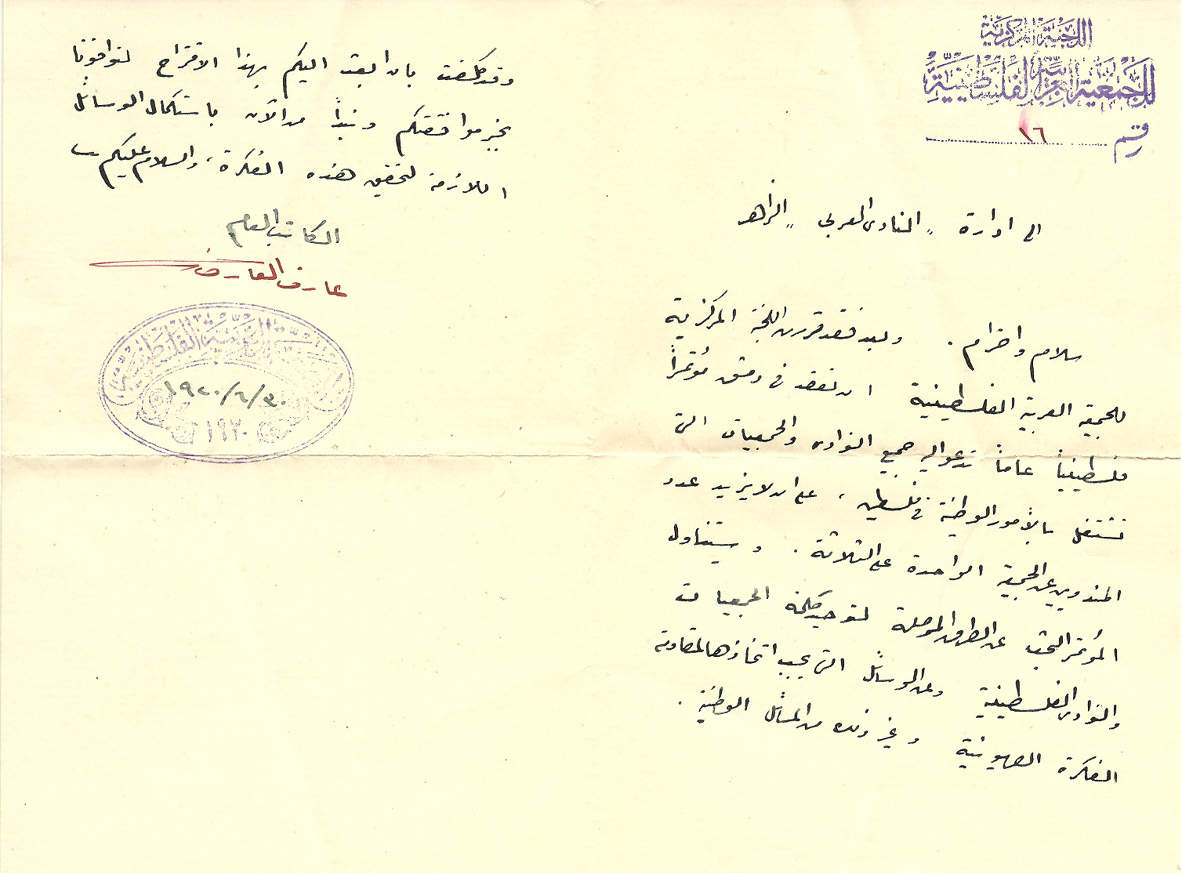 اللجنة المركزية
للجمعية العربية الفلسطينية
رقم ١٦
الى ادارة „ النادي العربي „ الزاهر
سلام واحترام . وبعد فقد قررت اللجنة المركزية
للجمعية العربية الفلسطينية ان تعقد في دمشق مؤتمراً
فلسطينياً عاماً تدعو اليه جميع النوادي والجمعيات التي
تشتغل بالأمور الوطنية في فلسطين ، على ان لا يزيد عدد
المندوبين عن الجمعية الواحدة على الثلاثة . وسيتناول
المؤتمر البحث عن الطرق الموصلة لتوحيد كلمة الجمعيات
والنوادي الفلسطينية وعن الوسائل التي يجب اتخاذها لمقاومة
الفكرة الصهيونية وغير ذلك من المسائل الوطنية .
وقد كلفت بان ابعث اليكم بهذا الاقتراح لتوافونا
بخبر موافقتكم ونبدأ من الآن باستكمال الوسائل
اللازمة لتحقيق هذه الفكرة ، والسلام عليكم
الكاتب العام
عارف العارف
الجمعية العربية الفلسطينية
١٩٢٠/٦/٣٠
١٩٢٠